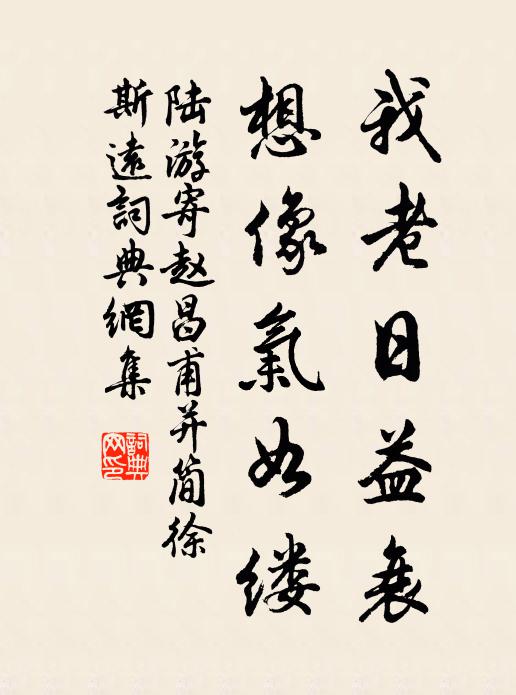 我老日益衰
想像氣如缕
陆游寄赵昌甫并简徐
斯遠詞典網集
詞典网印